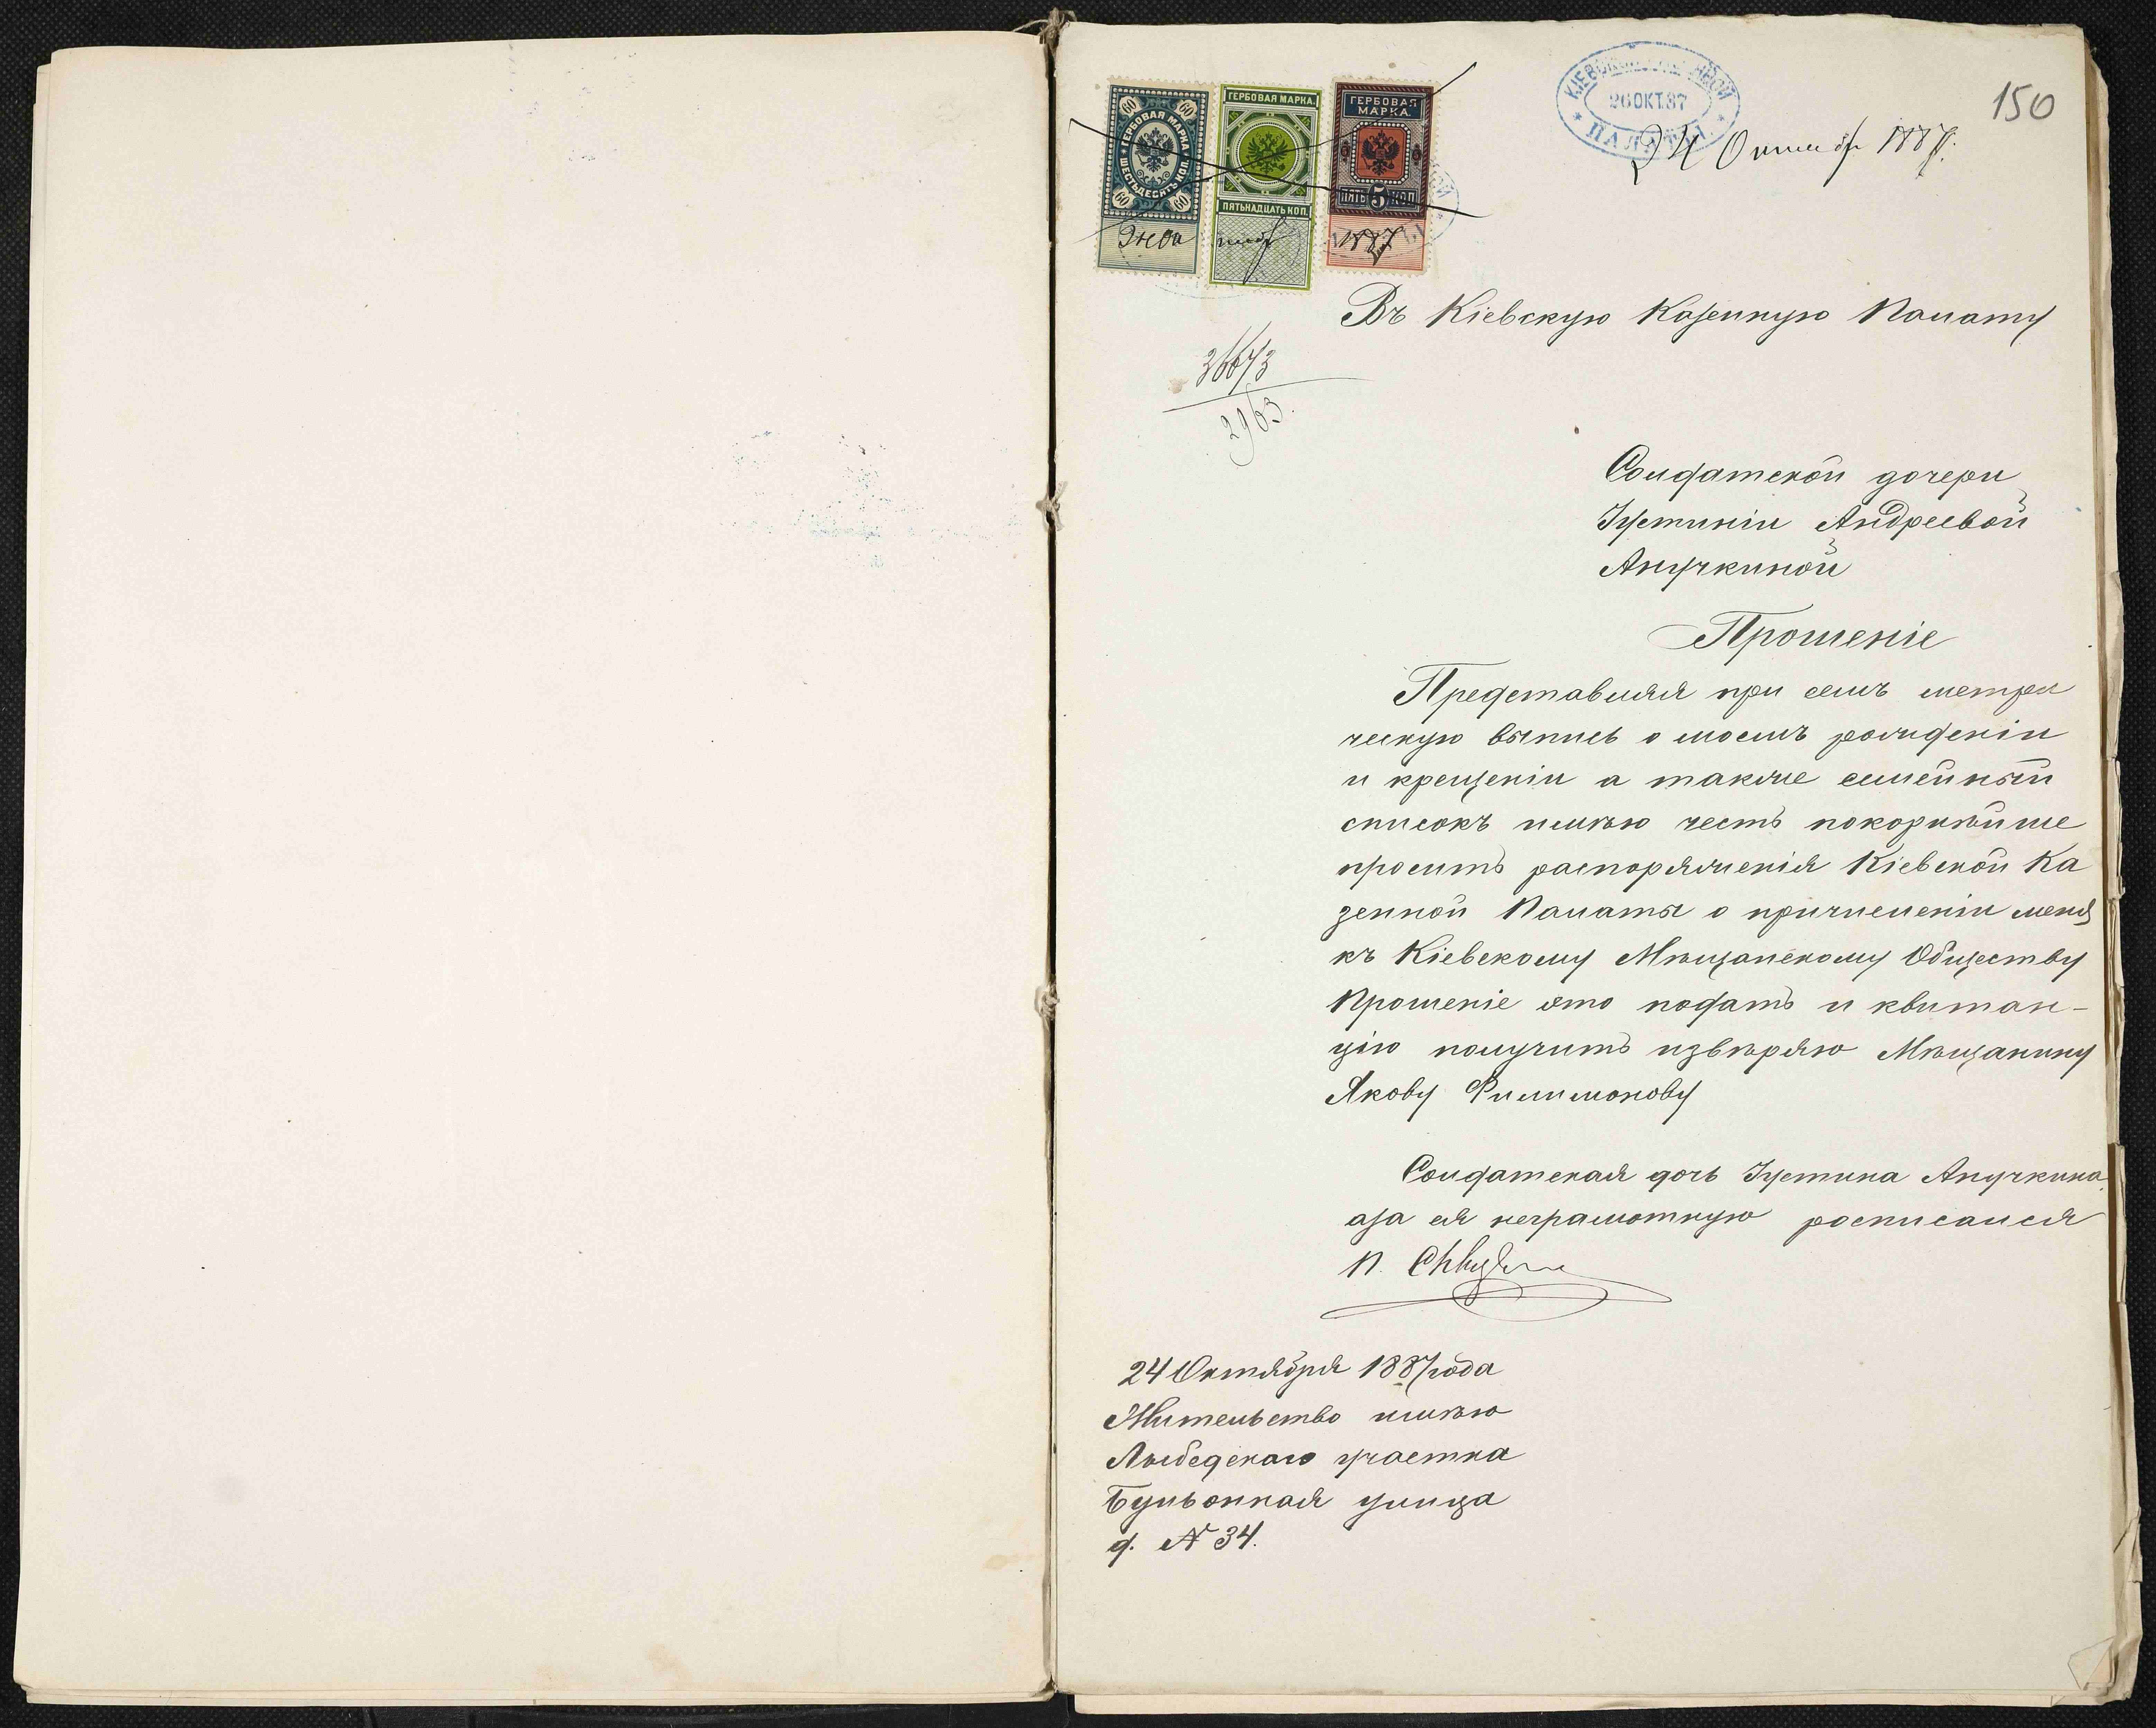 150
КІЕВСКОЙ КАЗЕННОЙ
26 ОКТ. 87
ПАЛАТЫ
24 Октября 1887.
60 60
ГЕРБОВАЯ МАРКА
ШЕСТЬДЕСЯТЪ КОП.
60 60
ГЕРБОВАЯ МАРКА.
ПЯТЬНАДЦАТЬ КОП.
ГЕРБОВАЯ
МАРКА.
ПЯТЬ 5 КОП.
1887
Въ Кіевскую Казенную Палату
36673
2963.
Солдатской дочери
Іустиніи Андреевой
Анучкиной
Прошеніе
Представляя при семъ метри
ческую выпись о моемъ рожденіи
и крещеніи а также семейный
списокъ имѣю честь покорнѣйше
просить распоряженія Кіевской Ка
зенной Палаты о причисленіи меня
къ Кіевскому Мѣщанскому Обществу
Прошеніе это подать и квитан-
цію получить извѣряю Мѣщанину
Якову Филимонову
Солдатская дочь Іустина Анучкина,
аза ея неграмотную росписался
П.
24 Октября 1887 года
Жительство имѣю
Лыбедскаго участка
Бульонная улица
д. № 34.